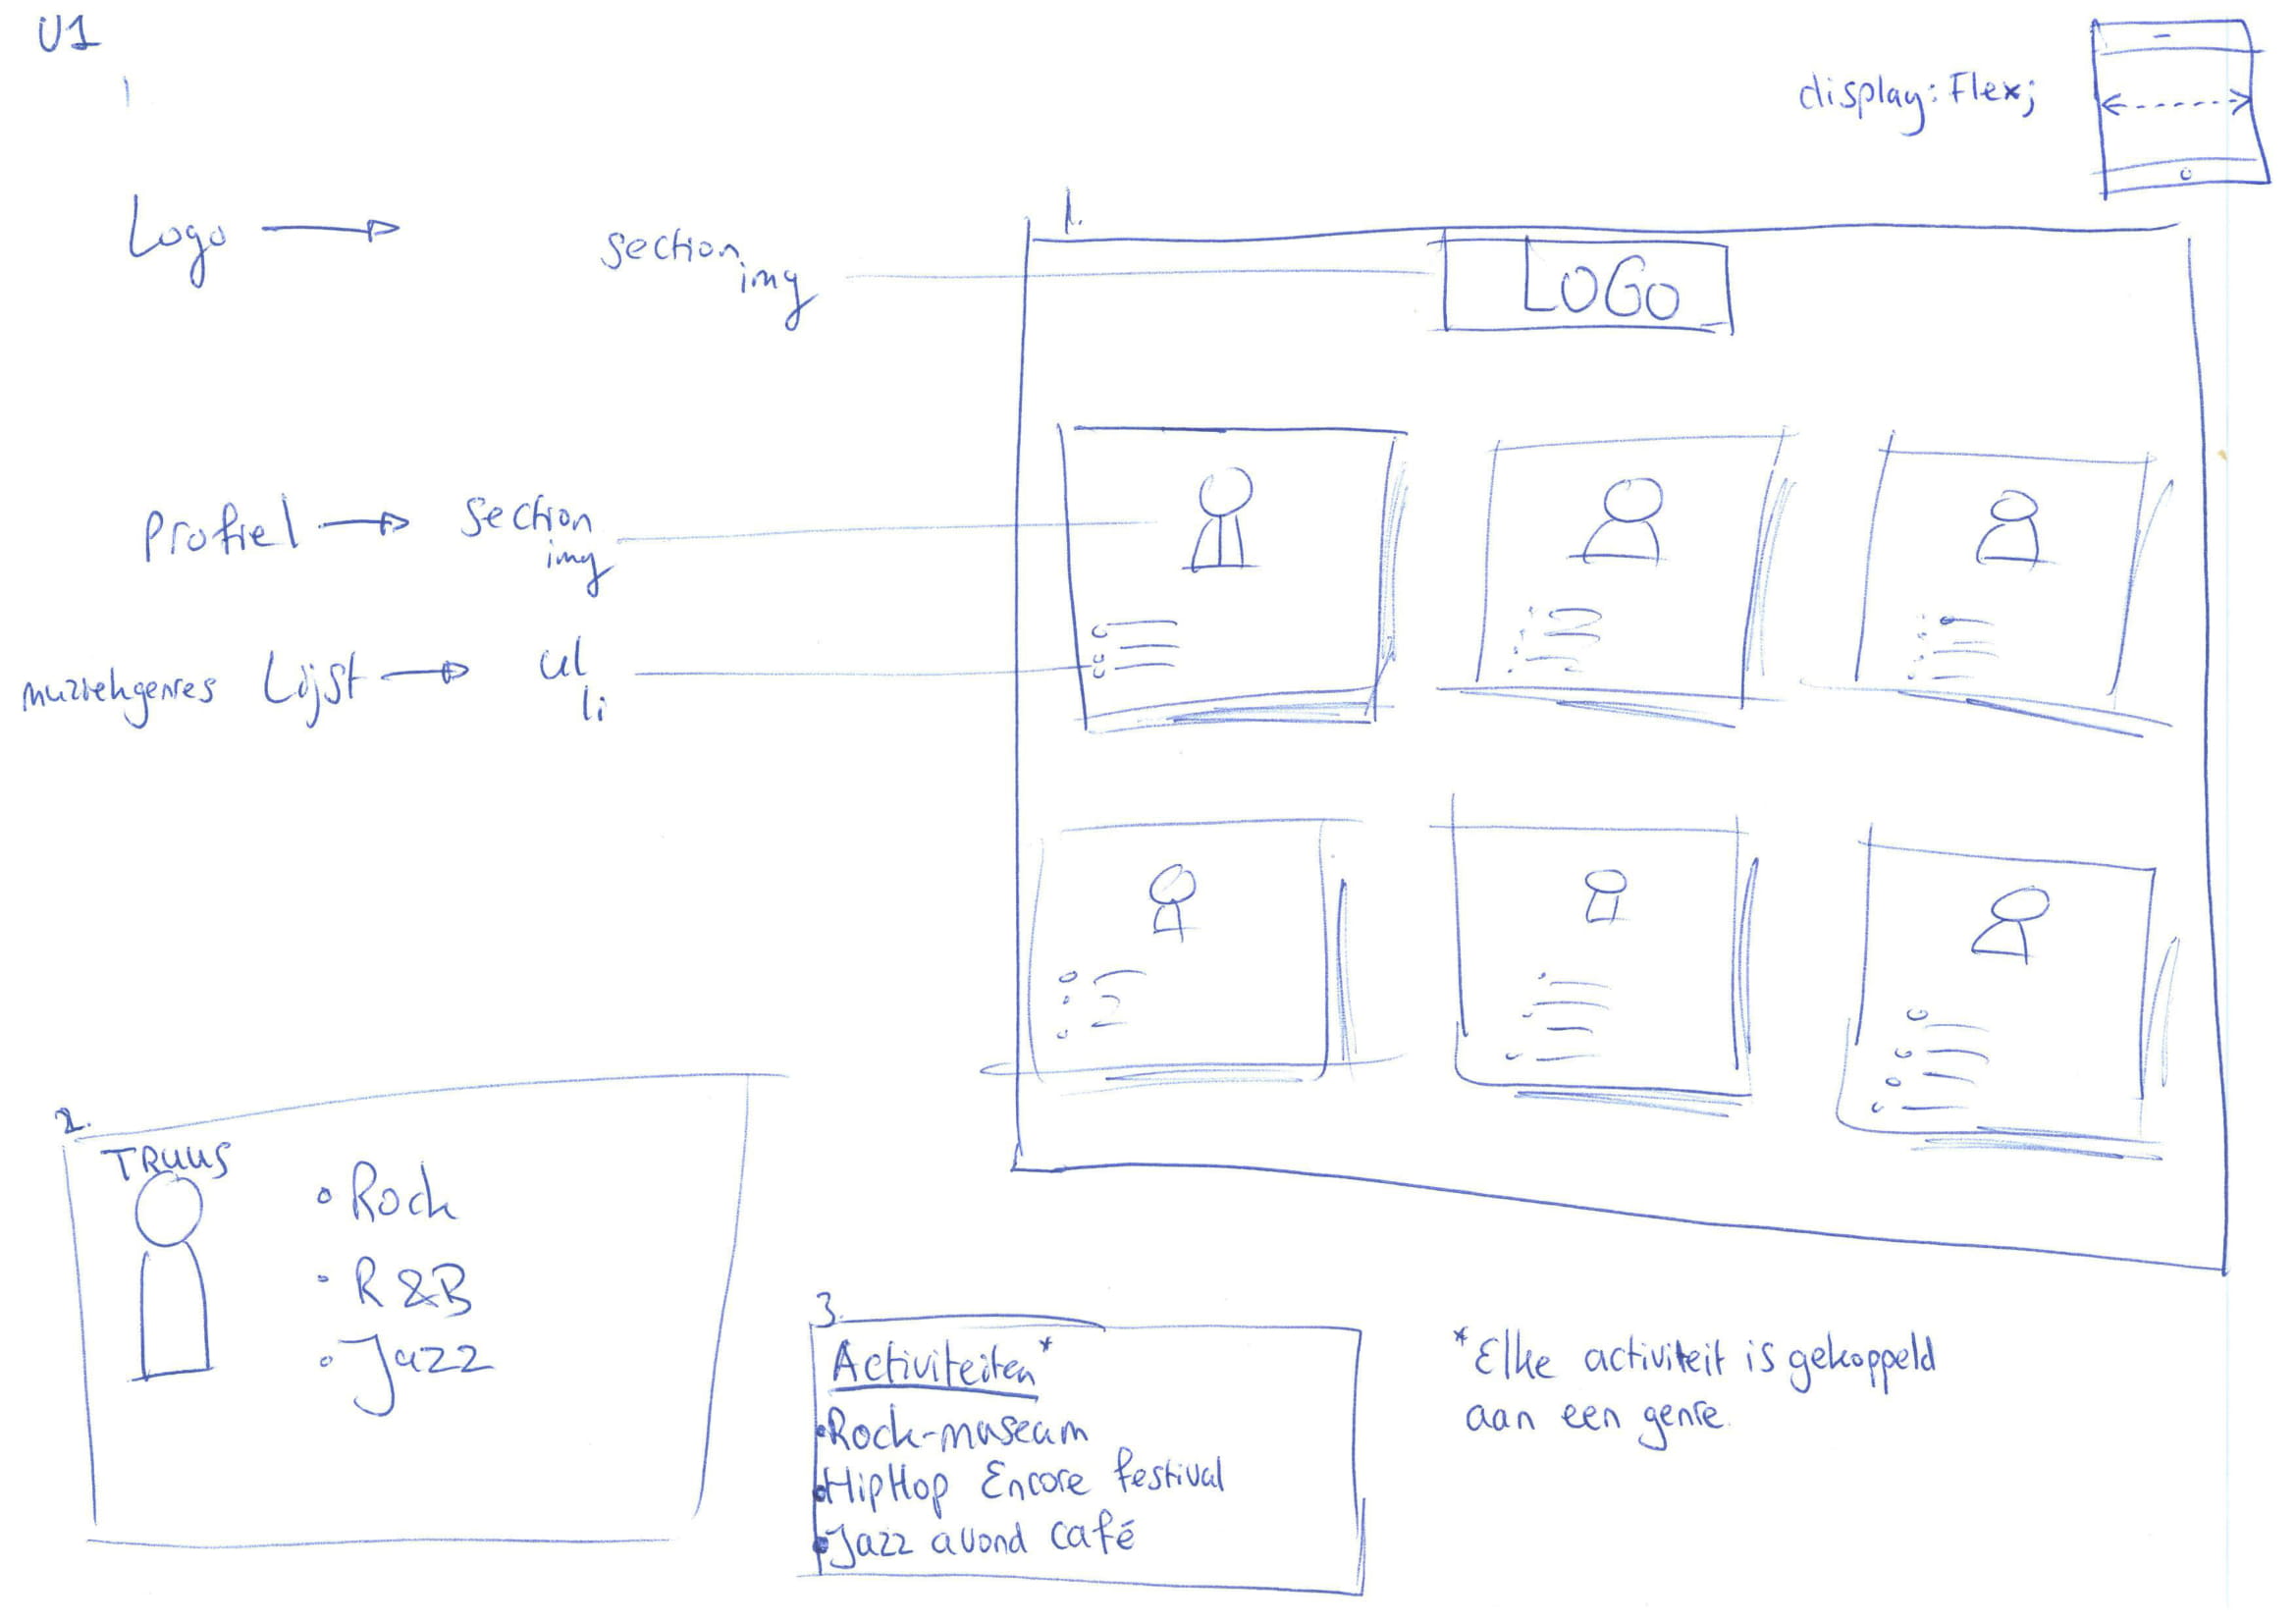 V1
display: Flex;
1.
Logo
section
img
LOGO
Profiel
section
img
muziekgenres Lijst
ul
li
2.
TRUUS
Rock
R&B
Jazz
3.
Activiteiten*
Rock-museum
HipHop Encore festival
Jazz avond café
*Elke activiteit is gekoppeld
aan een genre.